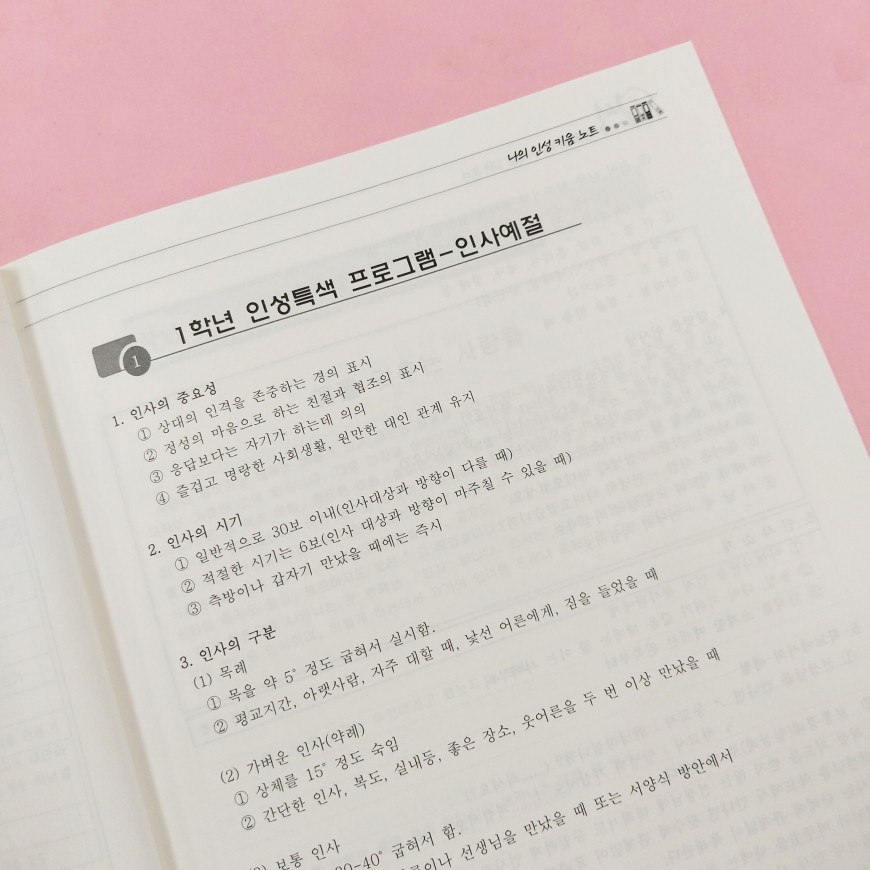 나의 인성 키움 노트
1학년 인성특색 프로그램-인사예절
1
1. 인사의 중요성
① 상대의 인격을 존중하는 경의 표시
② 정성의 마음으로 하는 친절과 협조의 표시
③ 응답보다는 자기가 하는데 의의
④ 즐겁고 명랑한 사회생활, 원만한 대인 관계 유지
2. 인사의 시기
① 일반적으로 30보 이내(인사대상과 방향이 다를 때)
② 적절한 시기는 6보(인사 대상과 방향이 마주칠 수 있을 때)
③ 측방이나 갑자기 만났을 때에는 즉시
3. 인사의 구분
(1) 목례
① 목을 약 5° 정도 굽혀서 실시함.
② 평교지간, 아랫사람, 자주 대할 때, 낯선 어른에게, 짐을 들었을 때
(2) 가벼운 인사(약례)
① 상체를 15° 정도 숙임
② 간단한 인사, 복도, 실내등, 좋은 장소, 웃어른을 두 번 이상 만났을 때
보통 인사
30-40° 굽혀서 함.
선생님을 만났을 때 또는 서양식 방안에서